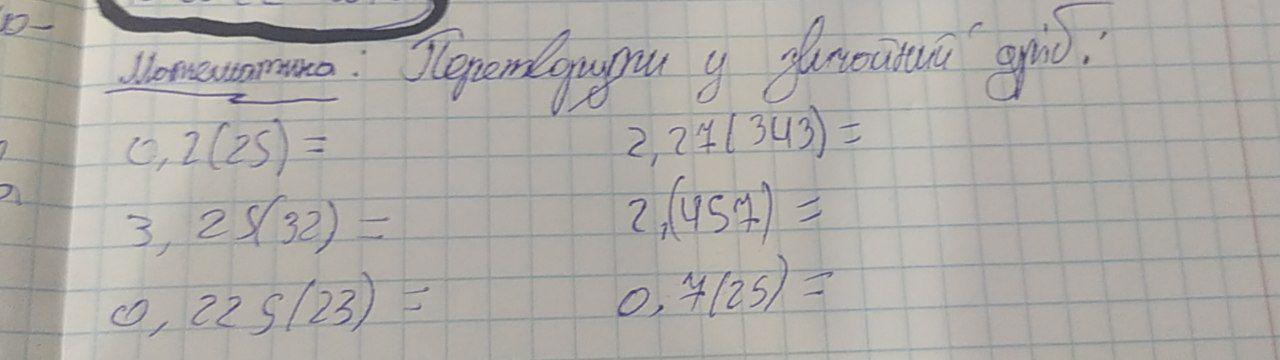 Математика: Перетворити у звичайний дріб:
0,2(25)=
2,27(343)=
3,25(32)=
2,(457)=
0,225(23)=
0,7(25)=